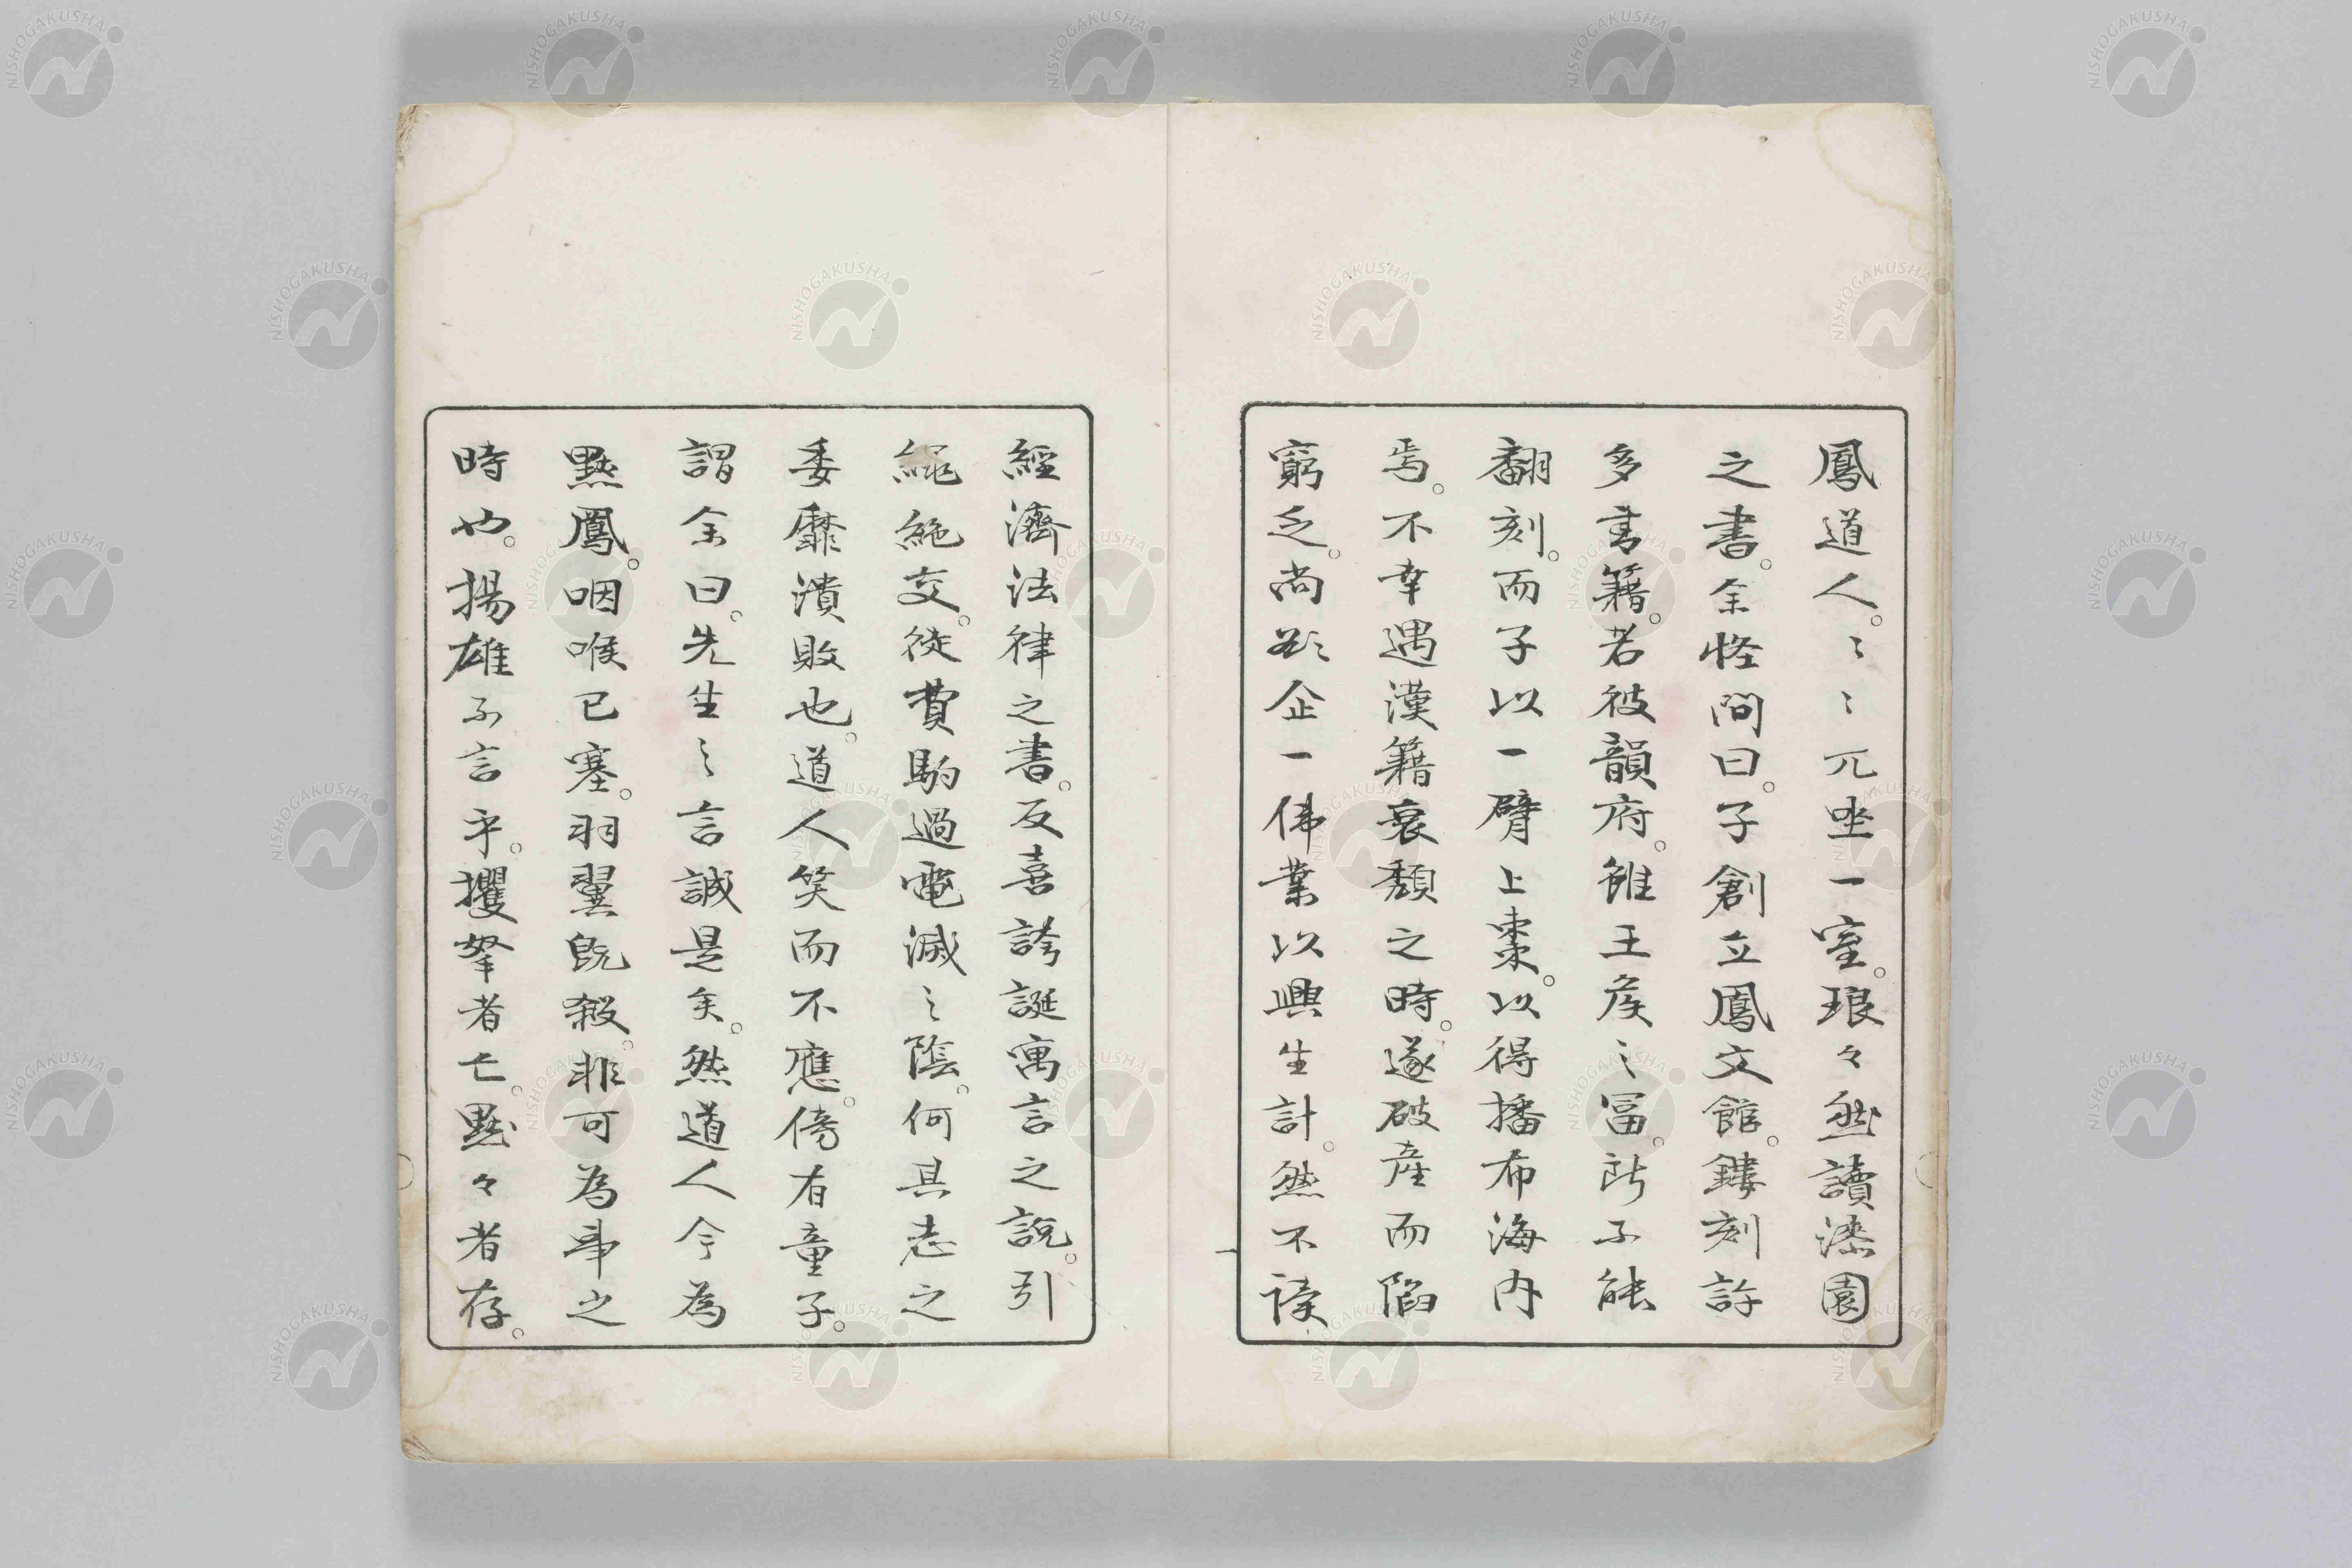 鳳道人。〻〻兀坐一室。琅々然讀漆園
之書。余怪問曰。子創立鳳文館。鏤刻許
多書籍。若彼韻府。雖王侯之冨。所不能
翻刻。而子以一臂上棗。以得播布海内
焉。不幸遇漢籍衰頽之時。遂破産而陷
窮乏。尚欲企一佛業以興生計。然不讀
經濟法律之書。反喜誇誕寓言之說。引
繩絶交。徒費駒過電滅之陰。何其志之
委靡潰敗也。道人笑而不應。傍有童子。
謂余曰。先生之言誠是矣。然道人今為
黙鳳。咽喉已塞。羽翼既殺。非可為事之
時也。揚雄不言乎。攫拏者亡。黙々者存。
NISHOGAKUSHA